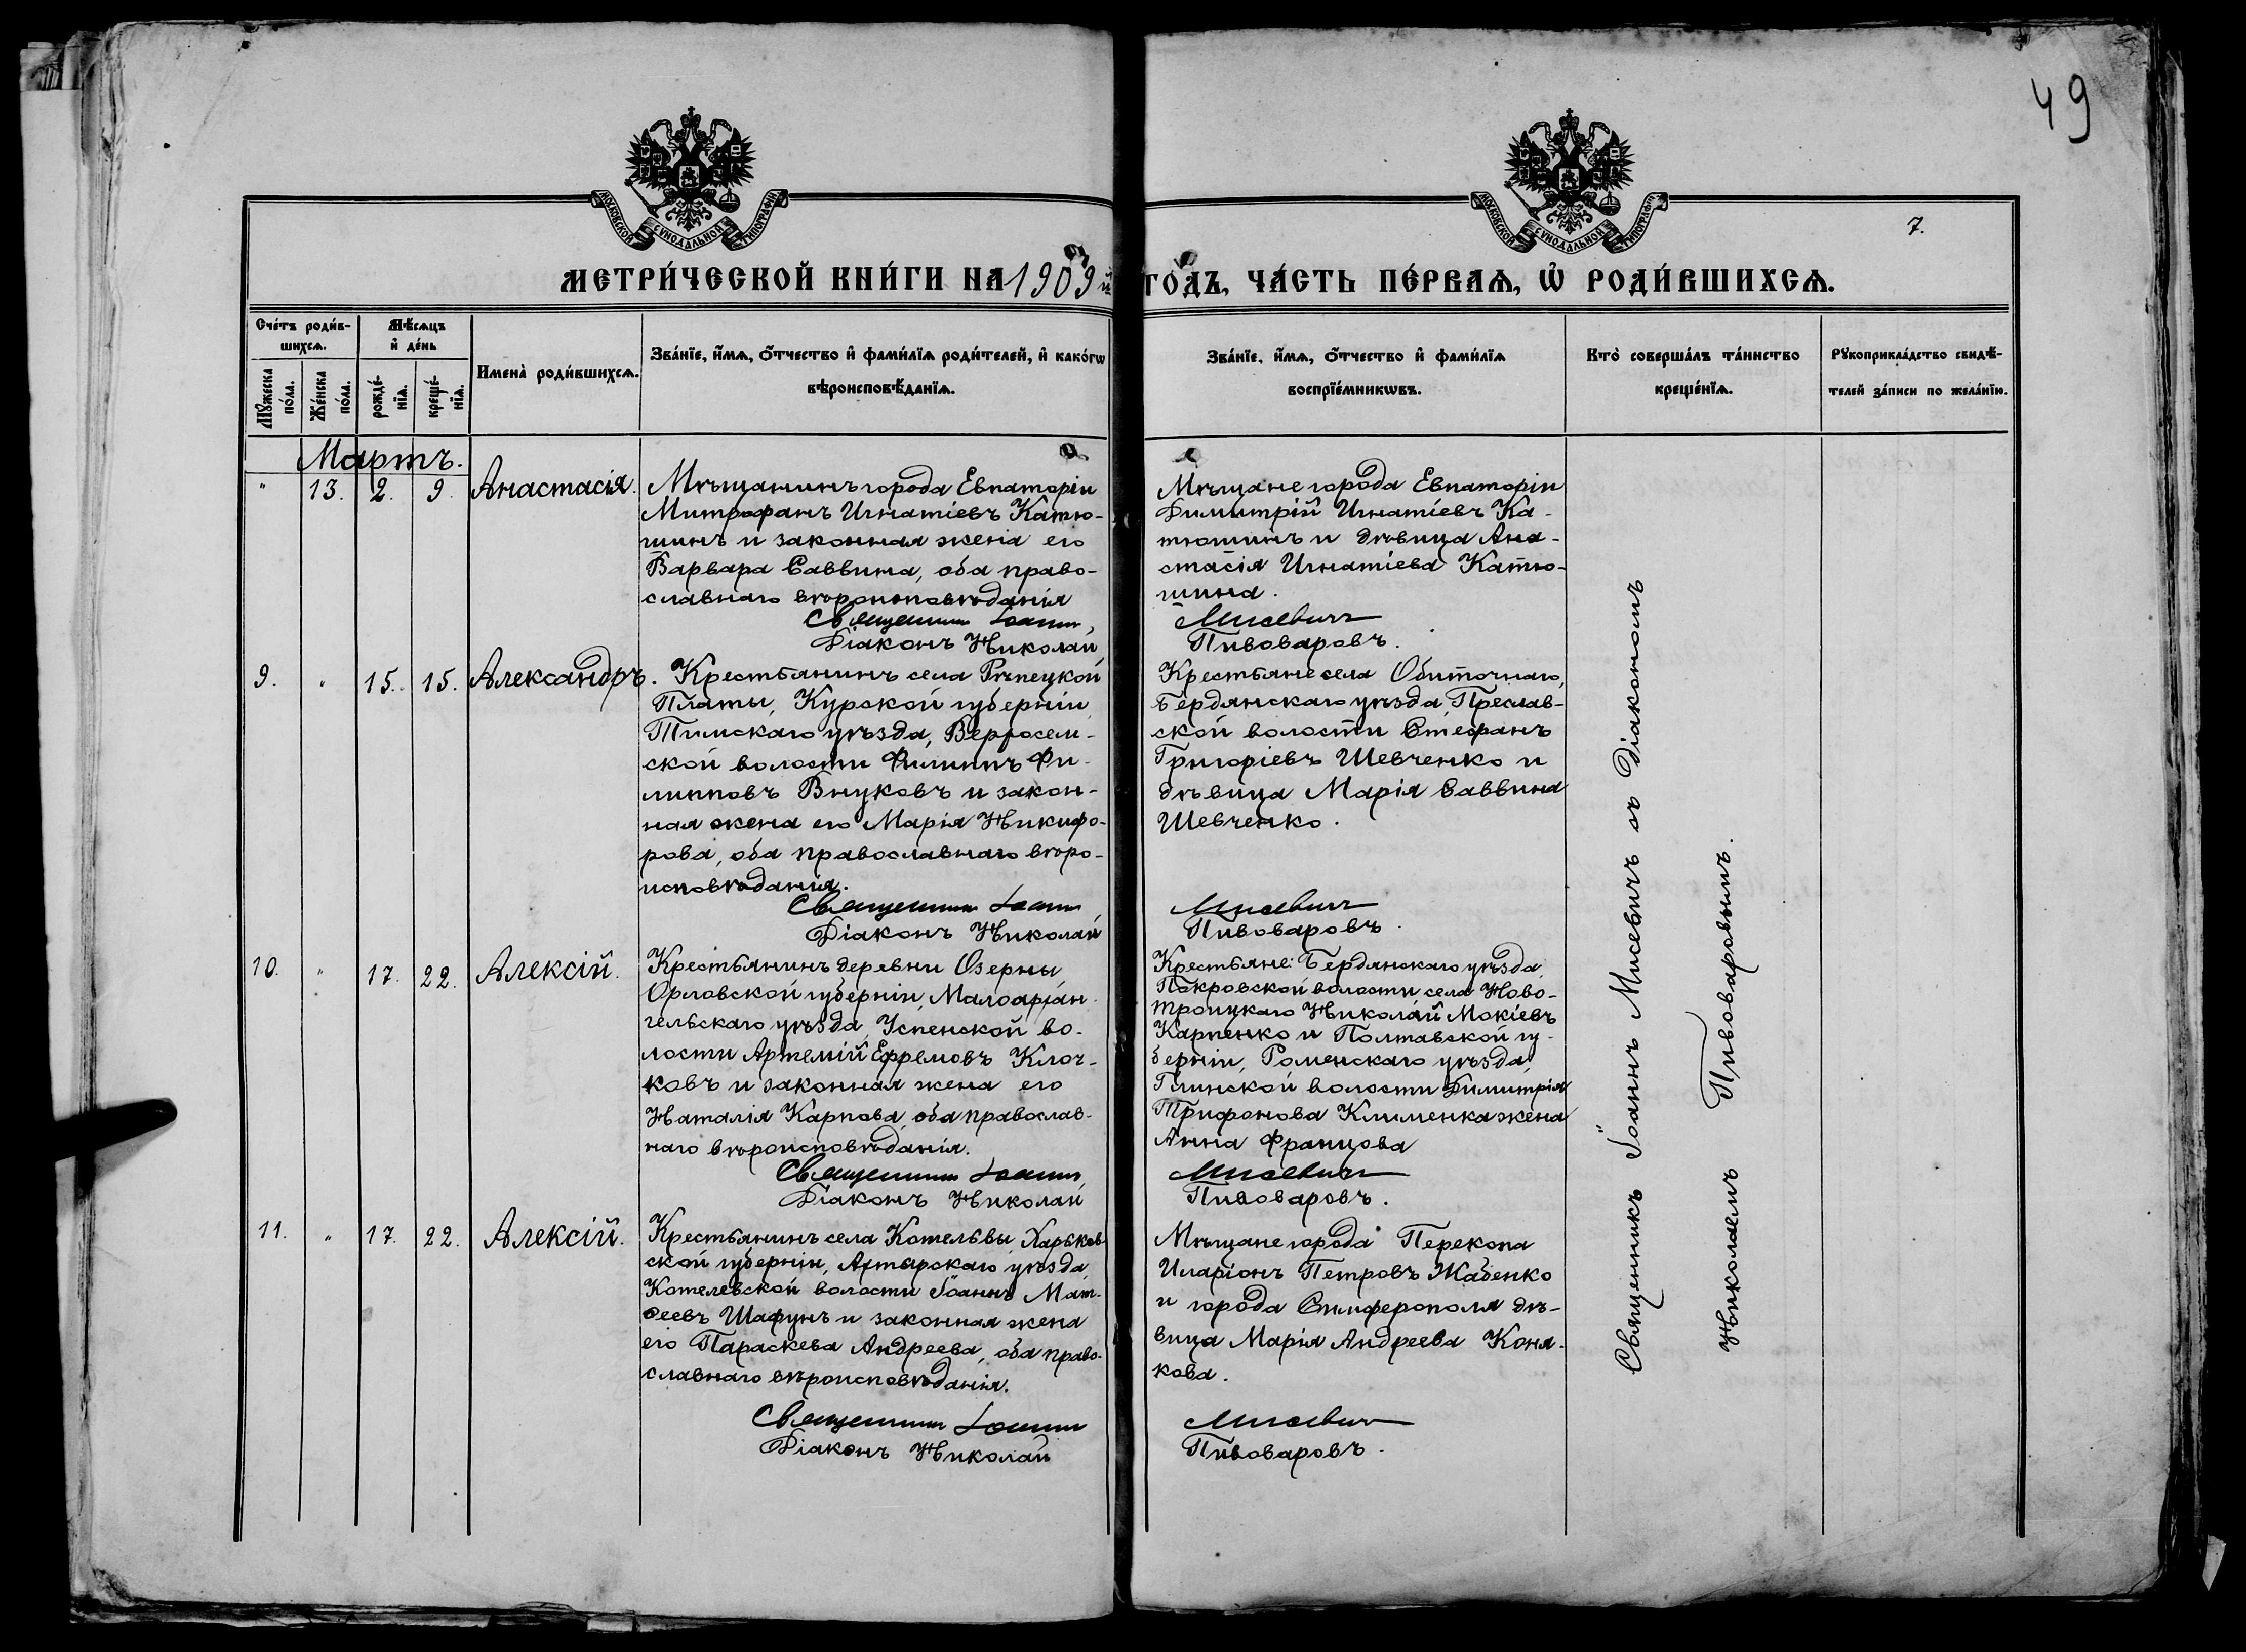 49
МОСКОВСКОЙ СУНОДАЛЬНОЙ ТИПОГРАФІИ
МОСКОВСКОЙ СУНОДАЛЬНОЙ ТИПОГРАФІИ
7.
МЕТРИ́ЧЕСКОЙ КНИ́ГИ НА 1909 й ГО́ДЪ, ЧА́СТЬ ПЕ́РВАѦ, Ѡ҆ РОДИ́ВШИХСѦ.
Сче́тъ роди́в-
шихсѧ.
Мѣ́сѧцъ
и҆ де́нь
Мꙋ́жеска
по́ла.
Же́нска
по́ла.
рожде́-
нїѧ.
креще́-
нїѧ.
Имена̀ роди́вшихсѧ.
Зва́нїе, и҆́мѧ, ѻ҆́тчество и҆ фами́лїѧ роди́телей, и҆ како́гѡ
вѣроисповѣ́данїѧ.
Зва́нїе, и҆́мѧ, ѻ҆́тчество и҆ фами́лїѧ
воспрїе́мникѡвъ.
Кто̀ соверша́лъ та́инство
креще́нїѧ.
Рꙋкоприкла́дство свидѣ́-
телей за́писи по жела́нїю.
Мартъ.
" 13. 2. 9. Анастасія.
Мѣщанинъ города Евпаторіи
Митрофанъ Игнатіевъ Катю-
шинъ и законная жена его
Варвара Саввина, оба право-
славнаго вѣроисповѣданія
Священникъ Іоаннъ
Діаконъ Николай
Мѣщане города Евпаторіи
Димитрій Игнатіевъ Ка-
тюшинъ и дѣвица Ана-
стасія Игнатіева Катю-
шина.
Мисевичъ
Пивоваровъ.
9. " 15. 15. Александръ.
Крестьянинъ села Рѣпецкой
Платы, Курской губерніи
Тимскаго уѣзда, Верхосем-
ской волости Филиппъ Фи-
липповъ Внуковъ и закон-
ная жена его Марія Никифо-
рова, оба православнаго вѣро-
исповѣданія.
Священникъ Іоаннъ
Діаконъ Николай
Крестьяне села Обиточнаго,
Бердянскаго уѣзда, Преслав-
ской волости Стефанъ
Григоріевъ Шевченко и
дѣвица Марія Саввина
Шевченко.
Мисевичъ
Пивоваровъ.
10. " 17. 22. Алексій.
Крестьянинъ деревни Озерны
Орловской губерніи, Малоархан-
гельскаго уѣзда, Успенской во-
лости Артемій Ефремовъ Клоч-
ковъ и законная жена его
Наталія Карпова, оба православ-
наго вѣроисповѣданія.
Священникъ Іоаннъ
Діаконъ Николай
Крестьяне: Бердянскаго уѣзда,
Покровской волости села Ново-
троицкаго Николай Мокіевъ
Карпенко и Полтавской гу-
берніи, Роменскаго уѣзда,
Глинской волости Димитрія
Трифонова Клименка жена
Анна Францова
Мисевичъ
Пивоваровъ.
11. " 17. 22. Алексій.
Крестьянинъ села Котельвы, Харьков-
ской губерніи, Ахтырскаго уѣзда,
Котелевской волости Іоаннъ Мат-
ѳеевъ Шафунъ и законная жена
его Параскева Андреева, оба право-
славнаго вѣроисповѣданія.
Священникъ Іоаннъ
Діаконъ Николай
Мѣщане города Перекопа
Иларіонъ Петровъ Жабенко
и города Симферополя дѣ-
вица Марія Андреева Коня-
кова.
Мисевичъ
Пивоваровъ.
Священникъ Іоаннъ Мисевичъ съ Діакономъ
Николаемъ Пивоваровымъ.